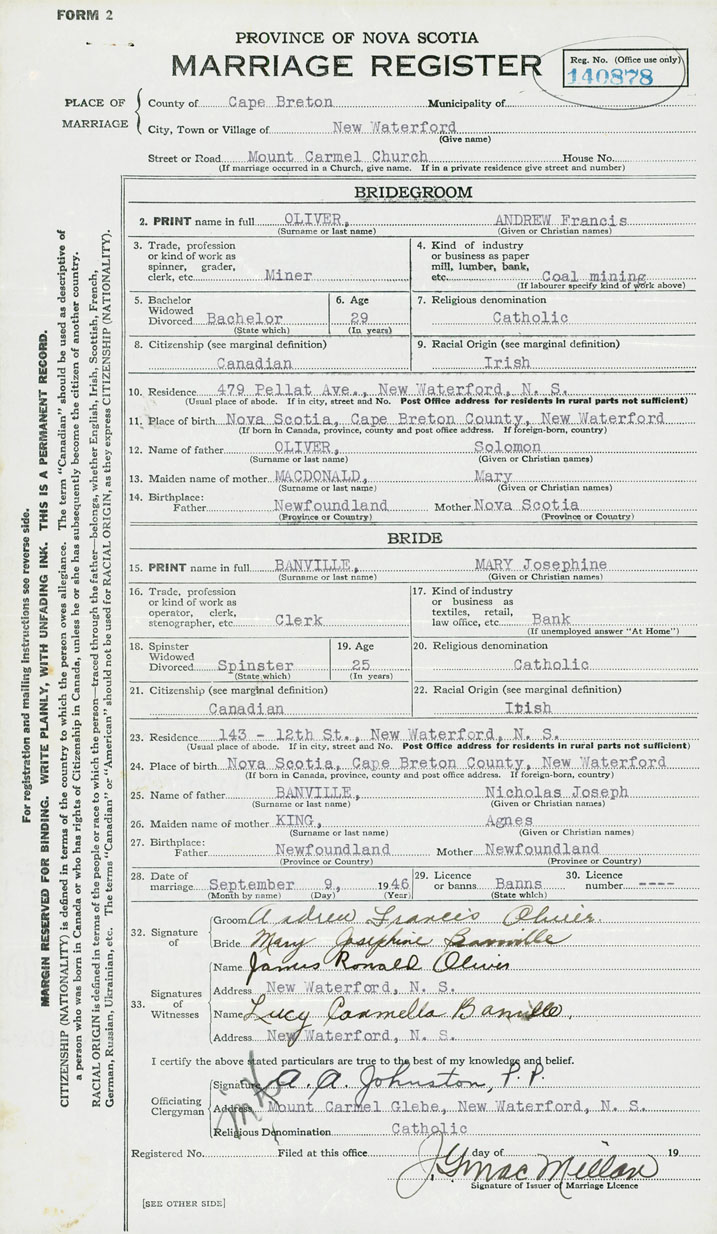 FORM 2
PROVINCE OF NOVA SCOTIA
MARRIAGE REGISTER
Reg. No. (Office use only)
140878
PLACE OF MARRIAGE
County of Cape Breton Municipality of
City, Town or Village of New Waterford
(Give name)
Street or Road Mount Carmel Church House No.
(If marriage occurred in a Church, give name. If in a private residence give street and number)
BRIDEGROOM
2. PRINT name in full OLIVER, ANDREW Francis
(Surname or last name) (Given or Christian names)
3. Trade, profession or kind of work as spinner, grader, clerk, etc. Miner
4. Kind of industry or business as paper mill, lumber, bank, etc. Coal mining
(If labourer specify kind of work above)
5. Bachelor Widowed Divorced Bachelor
(State which)
6. Age 29
(In years)
7. Religious denomination
Catholic
8. Citizenship (see marginal definition)
Canadian
9. Racial Origin (see marginal definition)
Irish
10. Residence 479 Pellat Ave., New Waterford, N. S.
(Usual place of abode. If in city, street and No. Post Office address for residents in rural parts not sufficient)
11. Place of birth Nova Scotia, Cape Breton County, New Waterford
(If born in Canada, province, county and post office address. If foreign-born, country)
12. Name of father OLIVER, Solomon
(Surname or last name) (Given or Christian names)
13. Maiden name of mother MACDONALD, Mary
(Surname or last name) (Given or Christian names)
14. Birthplace:
Father Newfoundland Mother Nova Scotia
(Province or Country) (Province or Country)
BRIDE
15. PRINT name in full BANVILLE, MARY Josephine
(Surname or last name) (Given or Christian names)
16. Trade, profession or kind of work as operator, clerk, stenographer, etc. Clerk
17. Kind of industry or business as textiles, retail, law office, etc. Bank
(If unemployed answer "At Home")
18. Spinster Widowed Divorced Spinster
(State which)
19. Age 25
(In years)
20. Religious denomination
Catholic
21. Citizenship (see marginal definition)
Canadian
22. Racial Origin (see marginal definition)
Irish
23. Residence 143 - 12th St., New Waterford, N. S.
(Usual place of abode. If in city, street and No. Post Office address for residents in rural parts not sufficient)
24. Place of birth Nova Scotia, Cape Breton County, New Waterford
(If born in Canada, province, county and post office address. If foreign-born, country)
25. Name of father BANVILLE, Nicholas Joseph
(Surname or last name) (Given or Christian names)
26. Maiden name of mother KING, Agnes
(Surname or last name) (Given or Christian names)
27. Birthplace:
Father Newfoundland Mother Newfoundland
(Province or Country) (Province or Country)
28. Date of marriage September 9, 1946
(Month by name) (Day) (Year)
29. Licence or banns Banns
(State which)
30. Licence number ----
32. Signature of
Groom Andrew Francis Oliver.
Bride Mary Josephine Banville
33. Signatures of Witnesses
Name James Ronald Oliver
Address New Waterford, N. S.
Name Lucy Carmella Banville,
Address New Waterford, N. S.
I certify the above stated particulars are true to the best of my knowledge and belief.
Officiating Clergyman
Signature A. A. Johnston, P.P.
Address Mount Carmel Glebe, New Waterford, N. S.
Religious Denomination Catholic
Registered No. Filed at this office day of 19
J. G. MacMillan
Signature of Issuer of Marriage Licence
[SEE OTHER SIDE]
For registration and mailing instructions see reverse side.
MARGIN RESERVED FOR BINDING. WRITE PLAINLY, WITH UNFADING INK. THIS IS A PERMANENT RECORD.
CITIZENSHIP (NATIONALITY) is defined in terms of the country to which the person owes allegiance. The term "Canadian" should be used as descriptive of
a person who was born in Canada or who has rights of Citizenship in Canada, unless he or she has subsequently become the citizen of another country.
RACIAL ORIGIN is defined in terms of the people or race to which the person—traced through the father—belongs, whether English, Irish, Scottish, French,
German, Russian, Ukrainian, etc. The terms "Canadian" or "American" should not be used for RACIAL ORIGIN, as they express CITIZENSHIP (NATIONALITY).